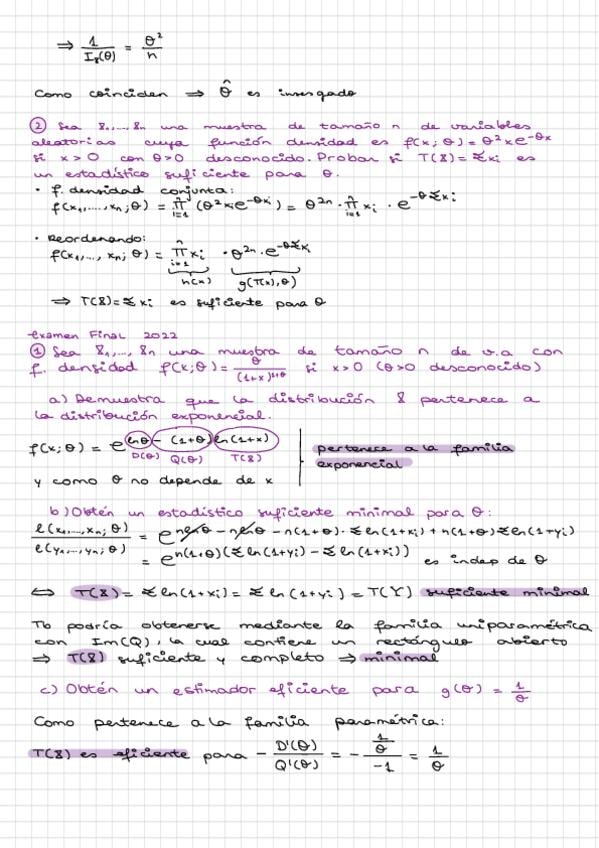 ⇒ 1/I_X(θ) = θ²/n
Como coinciden ⇒ θ̂ es insesgado
② Sea X₁,..., Xn una muestra de tamaño n de variables
aleatorias cuya función densidad es f(x; θ) = θ² x e^(-θx)
si x > 0 con θ>0 desconocido. Probar si T(X) = Σxi es
un estadístico suficiente para θ.
• f. densidad conjunta:
f(x₁,..., xn; θ) = ∏ᵢ₌₁ⁿ (θ² xi e^(-θxi)) = θ²ⁿ · ∏ᵢ₌₁ⁿ xi · e^(-θΣxi)
• Reordenando:
f(x₁,..., xn; θ) = ∏ᵢ₌₁ⁿ xi · θ²ⁿ · e^(-θΣxi)
h(x) g(T(x), θ)
⇒ T(X) = Σxi es suficiente para θ
Examen Final 2022
① Sea X₁,..., Xn una muestra de tamaño n de v.a con
f. densidad f(x; θ) = θ/(1+x)^(1+θ) si x>0 (θ>0 desconocido)
a) Demuestra que la distribución X pertenece a
la distribución exponencial.
f(x; θ) = e^(lnθ - (1+θ) ln(1+x))
D(θ) Q(θ) T(X)
pertenece a la familia
exponencial
y como θ no depende de x
b) Obtén un estadístico suficiente minimal para θ:
ℓ(x₁,..., xn; θ)/ℓ(y₁,..., yn; θ) = e^(nlnθ - nlnθ - n(1+θ)·Σln(1+xi) + n(1+θ)Σln(1+yi))
= e^(n(1+θ)(Σln(1+yi) - Σln(1+xi))) es indep de θ
⇔ T(X) = Σln(1+xi) = Σln(1+yi) = T(Y) suficiente minimal
Tb podría obtenerse mediante la familia uniparamétrica
con Im(Q), la cual contiene un rectángulo abierto
⇒ T(X) suficiente y completo ⇒ minimal
c) Obtén un estimador eficiente para g(θ) = 1/θ
Como pertenece a la familia paramétrica:
T(X) es eficiente para - D'(θ)/Q'(θ) = - (1/θ)/(-1) = 1/θ